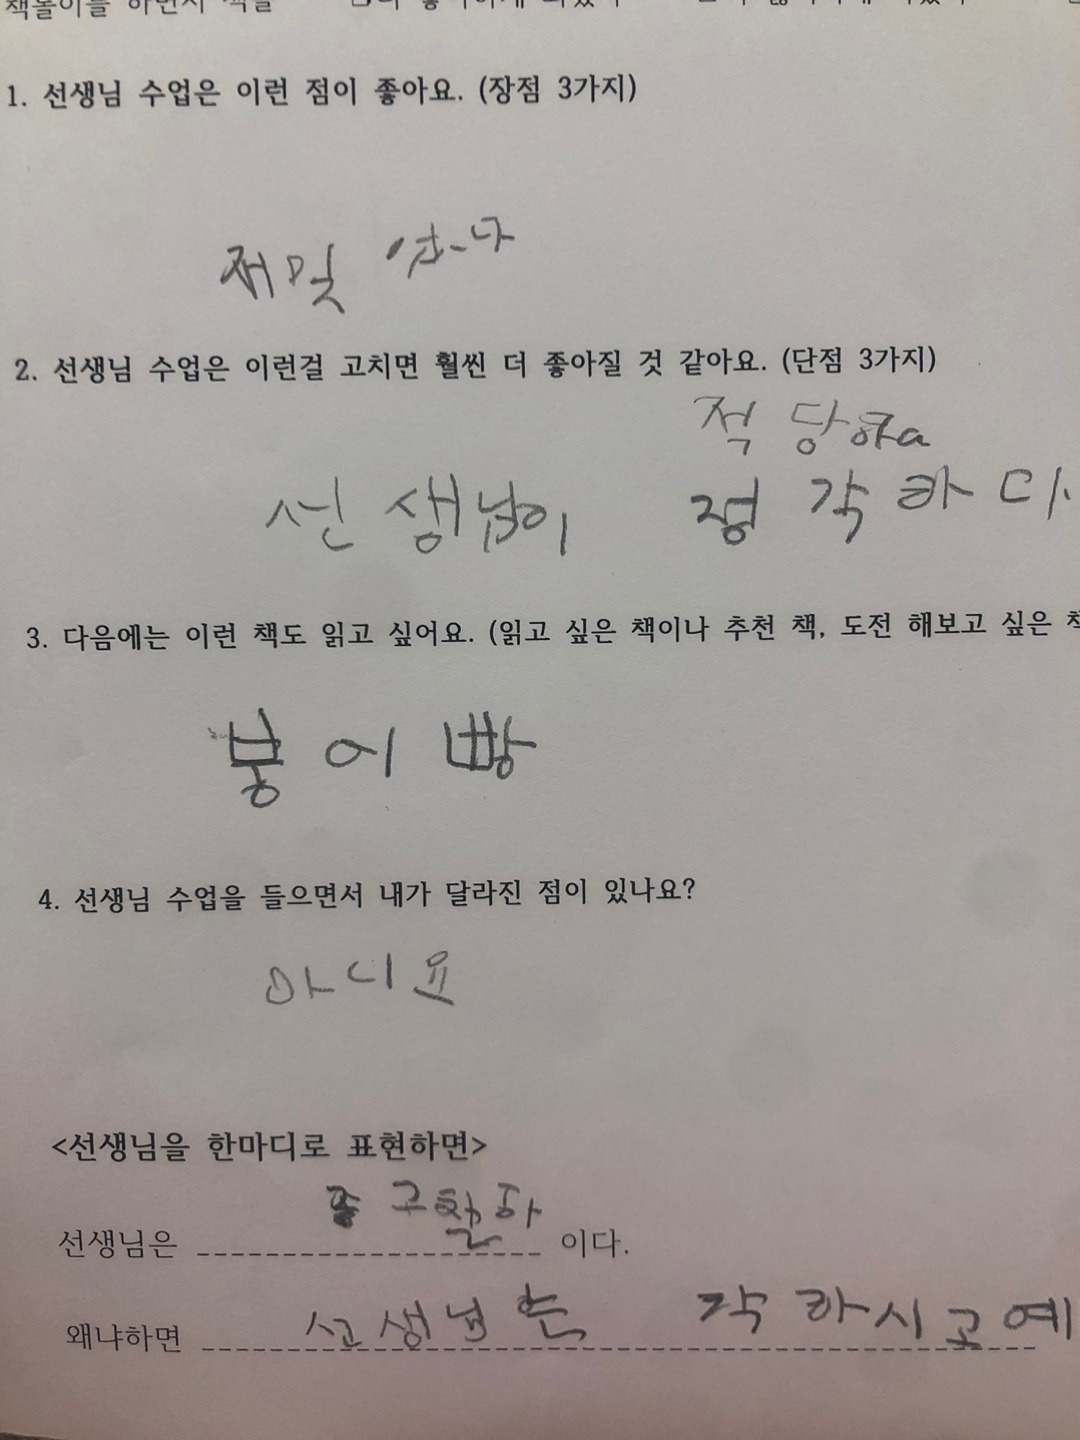 1. 선생님 수업은 이런 점이 좋아요. (장점 3가지)
2. 선생님 수업은 이런걸 고치면 훨씬 더 좋아질 것 같아요. (단점 3가지)
적당하a
선생님이 정 각하다.
3. 다음에는 이런 책도 읽고 싶어요. (읽고 싶은 책이나 추천 책, 도전 해보고 싶은 책
붕어빵
4. 선생님 수업을 들으면서 내가 달라진 점이 있나요?
아니요
<선생님을 한마디로 표현하면>
선생님은 이다.
왜냐하면 선생님은 각하시고예